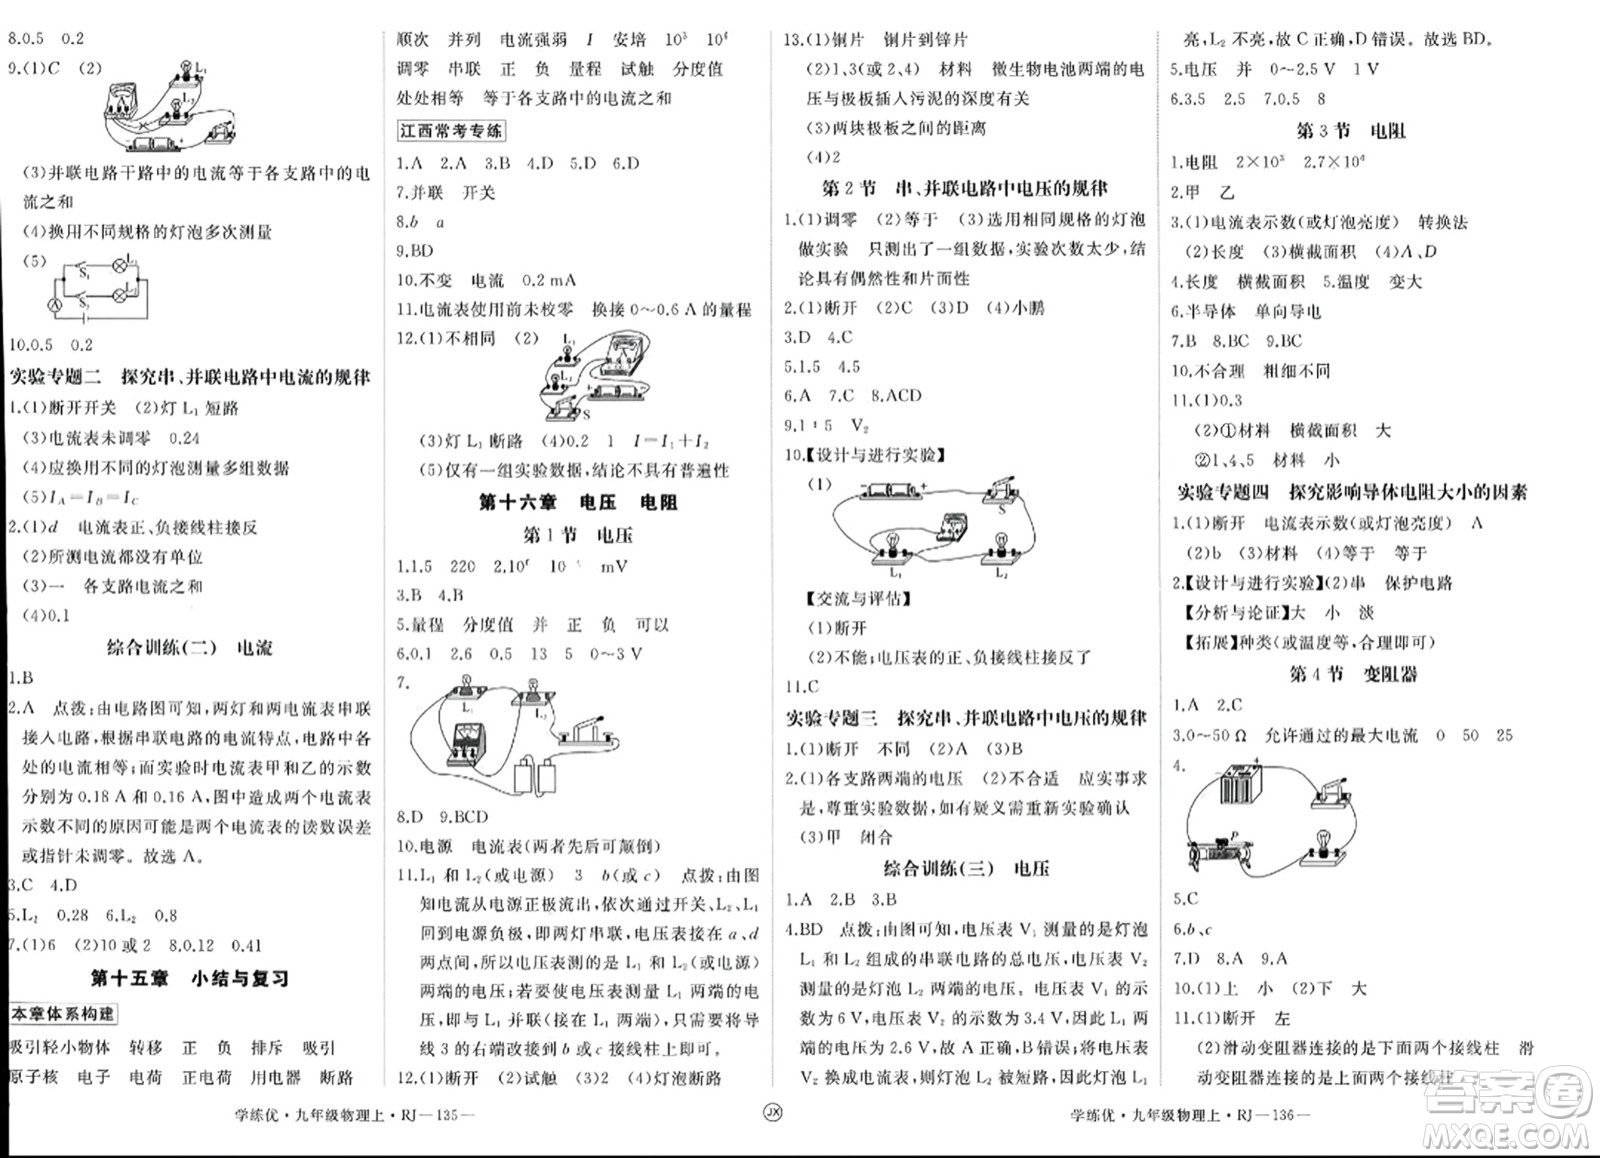 8.0.5　0.2
9.(1)C　(2)
L₁
L₂
(3)并联电路干路中的电流等于各支路中的电
流之和
(4)换用不同规格的灯泡多次测量
(5)
S₁
L₁
S₂
L₂
A
10.0.5　0.2
实验专题二　探究串、并联电路中电流的规律
1.(1)断开开关　(2)灯 L₁ 短路
(3)电流表未调零　0.24
(4)应换用不同的灯泡测量多组数据
(5)I_A＝I_B＝I_C
2.(1)d　电流表正、负接线柱接反
(2)所测电流都没有单位
(3)一　各支路电流之和
(4)0.1
综合训练(二)　电流
1.B
2.A　点拨:由电路图可知,两灯和两电流表串联
接入电路,根据串联电路的电流特点,电路中各
处的电流相等;而实验时电流表甲和乙的示数
分别为 0.18 A 和 0.16 A,图中造成两个电流表
示数不同的原因可能是两个电流表的读数误差
或指针未调零。故选 A。
3.C　4.D
5.L₂　0.28　6.L₂　0.8
7.(1)6　(2)10 或 2　8.0.12　0.41
第十五章　小结与复习
本章体系构建
吸引轻小物体　转移　正　负　排斥　吸引
原子核　电子　电荷　正电荷　用电器　断路
顺次　并列　电流强弱　I　安培　10³　10⁶
调零　串联　正　负　量程　试触　分度值
处处相等　等于各支路中的电流之和
江西常考专练
1.A　2.A　3.B　4.D　5.D　6.D
7.并联　开关
8.b　a
9.BD
10.不变　电流　0.2 mA
11.电流表使用前未校零　换接 0～0.6 A 的量程
12.(1)不相同　(2)
L₁
L₂
S
(3)灯 L₁ 断路　(4)0.2　1　I＝I₁＋I₂
(5)仅有一组实验数据,结论不具有普遍性
第十六章　电压　电阻
第 1 节　电压
1.1.5　220　2.10⁶　10　mV
3.B　4.B
5.量程　分度值　并　正　负　可以
6.0.1　2.6　0.5　13　5　0～3 V
7.
L₁
L₂
8.D　9.BCD
10.电源　电流表(两者先后可颠倒)
11.L₁ 和 L₂(或电源)　3　b(或 c)　点拨:由图
知电流从电源正极流出,依次通过开关、L₂、L₁
回到电源负极,即两灯串联,电压表接在 a、d
两点间,所以电压表测的是 L₁ 和 L₂(或电源)
两端的电压;若要使电压表测量 L₁ 两端的电
压,即与 L₁ 并联(接在 L₁ 两端),只需要将导
线 3 的右端改接到 b 或 c 接线柱上即可。
12.(1)断开　(2)试触　(3)2　(4)灯泡断路
学练优·九年级物理上·RJ—135—
JX
13.(1)铜片　铜片到锌片
(2)1、3(或 2、4)　材料　微生物电池两端的电
压与极板插入污泥的深度有关
(3)两块极板之间的距离
(4)2
第 2 节　串、并联电路中电压的规律
1.(1)调零　(2)等于　(3)选用相同规格的灯泡
做实验　只测出了一组数据,实验次数太少,结
论具有偶然性和片面性
2.(1)断开　(2)C　(3)D　(4)小鹏
3.D　4.C
5.1.5　4.5
6.A　7.C　8.ACD
9.1∶5　V₂
10.【设计与进行实验】
(1)
S
L₁
L₂
【交流与评估】
(1)断开
(2)不能;电压表的正、负接线柱接反了
11.C
实验专题三　探究串、并联电路中电压的规律
1.(1)断开　不同　(2)A　(3)B
2.(1)各支路两端的电压　(2)不合适　应实事求
是,尊重实验数据,如有疑义需重新实验确认
(3)甲　闭合
综合训练(三)　电压
1.A　2.B　3.B
4.BD　点拨:由图可知,电压表 V₁ 测量的是灯泡
L₁ 和 L₂ 组成的串联电路的总电压,电压表 V₂
测量的是灯泡 L₂ 两端的电压;电压表 V₁ 的示
数为 6 V,电压表 V₂ 的示数为 3.4 V,则灯泡 L₁ 两
端的电压为 2.6 V,故 A 正确、B 错误;将电压表
V₂ 换成电流表,则灯泡 L₂ 被短路,电压表 V₁
学练优·九年级物理上·RJ—136—
亮,L₂ 不亮,故 C 正确,D 错误。故选 BD。
5.电压　并　0～2.5 V　1 V
6.3.5　2.5　7.0.5　8
第 3 节　电阻
1.电阻　2×10³　2.7×10⁶
2.甲　乙
3.(1)电流表示数(或灯泡亮度)　转换法
(2)长度　(3)横截面积　(4)A、D
4.长度　横截面积　5.温度　变大
6.半导体　单向导电
7.B　8.BC　9.BC
10.不合理　粗细不同
11.(1)0.3
(2)①材料　横截面积　大
②1、4、5　材料　小
实验专题四　探究影响导体电阻大小的因素
1.(1)断开　电流表示数(或灯泡亮度)　A
(2)b　(3)材料　(4)等于　等于
2.【设计与进行实验】(2)串　保护电路
【分析与论证】大　小　淡
【拓展】种类(或温度等,合理即可)
第 4 节　变阻器
1.A　2.C
3.0～50 Ω　允许通过的最大电流　0　50　25
4.
P
5.C
6.b、c
7.D　8.A　9.A
10.(1)上　小　(2)下　大
11.(1)断开　左
(2)滑动变阻器连接的是上面两个接线柱　滑
动变阻器连接的是下面两个接线柱
答案圈
MXQE.COM